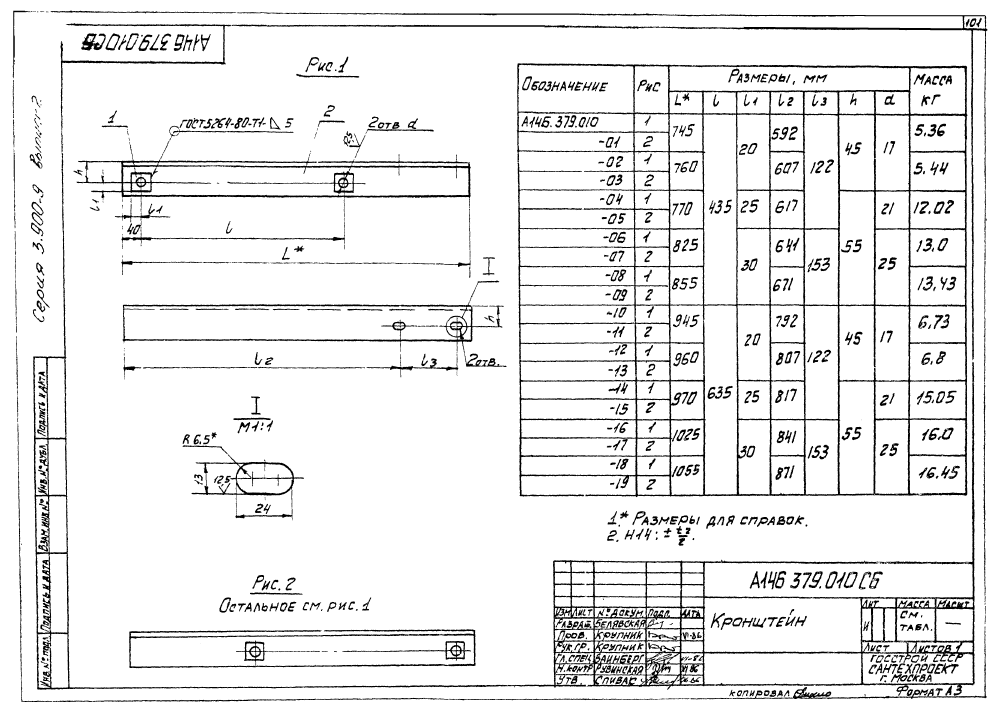 101
А14Б 379.010СБ
Серия 3.900-9 Выпуск 2
Рис.1
1
ГОСТ 5264-80-Т1-◺ 5
2
2отв d
h
l1
l1
40
l
L*
I
h
l2
l3
2отв.
I
М1:1
R 6,5*
13
12,5
24
Рис. 2
Остальное см. рис. 1
Обозначение Рис Размеры, мм Масса кг
L* l l1 l2 l3 h d
А14Б.379.010 1 745 435 20 592 122 45 17 5.36
-01 2
-02 1 760 607 5,44
-03 2
-04 1 770 25 617 55 21 12.02
-05 2
-06 1 825 30 641 153 25 13.0
-07 2
-08 1 855 671 13,43
-09 2
-10 1 945 635 20 792 122 45 17 6,73
-11 2
-12 1 960 807 6,8
-13 2
-14 1 970 25 817 55 21 15.05
-15 2
-16 1 1025 30 841 153 25 16.0
-17 2
-18 1 1055 871 16.45
-19 2
1.* Размеры для справок.
2. Н14:
А14Б 379.010 СБ
Кронштейн
Лит Масса Масшт
И см. табл. —
Лист Листов 1
Госстрой СССР
Сантехпроект
г. Москва
Изм Лист № докум. Подп. Дата
Разраб. Белявская
Пров. Крупник VI-86
Рук.гр. Крупник
Гл.спец Вайнберг
Н.контр Рувинская VI 86
Утв. Спивак
Копировал
Формат А3
Инв.№ подл. Подпись и дата Взам.инв.№ Инв.№ дубл. Подпись и дата